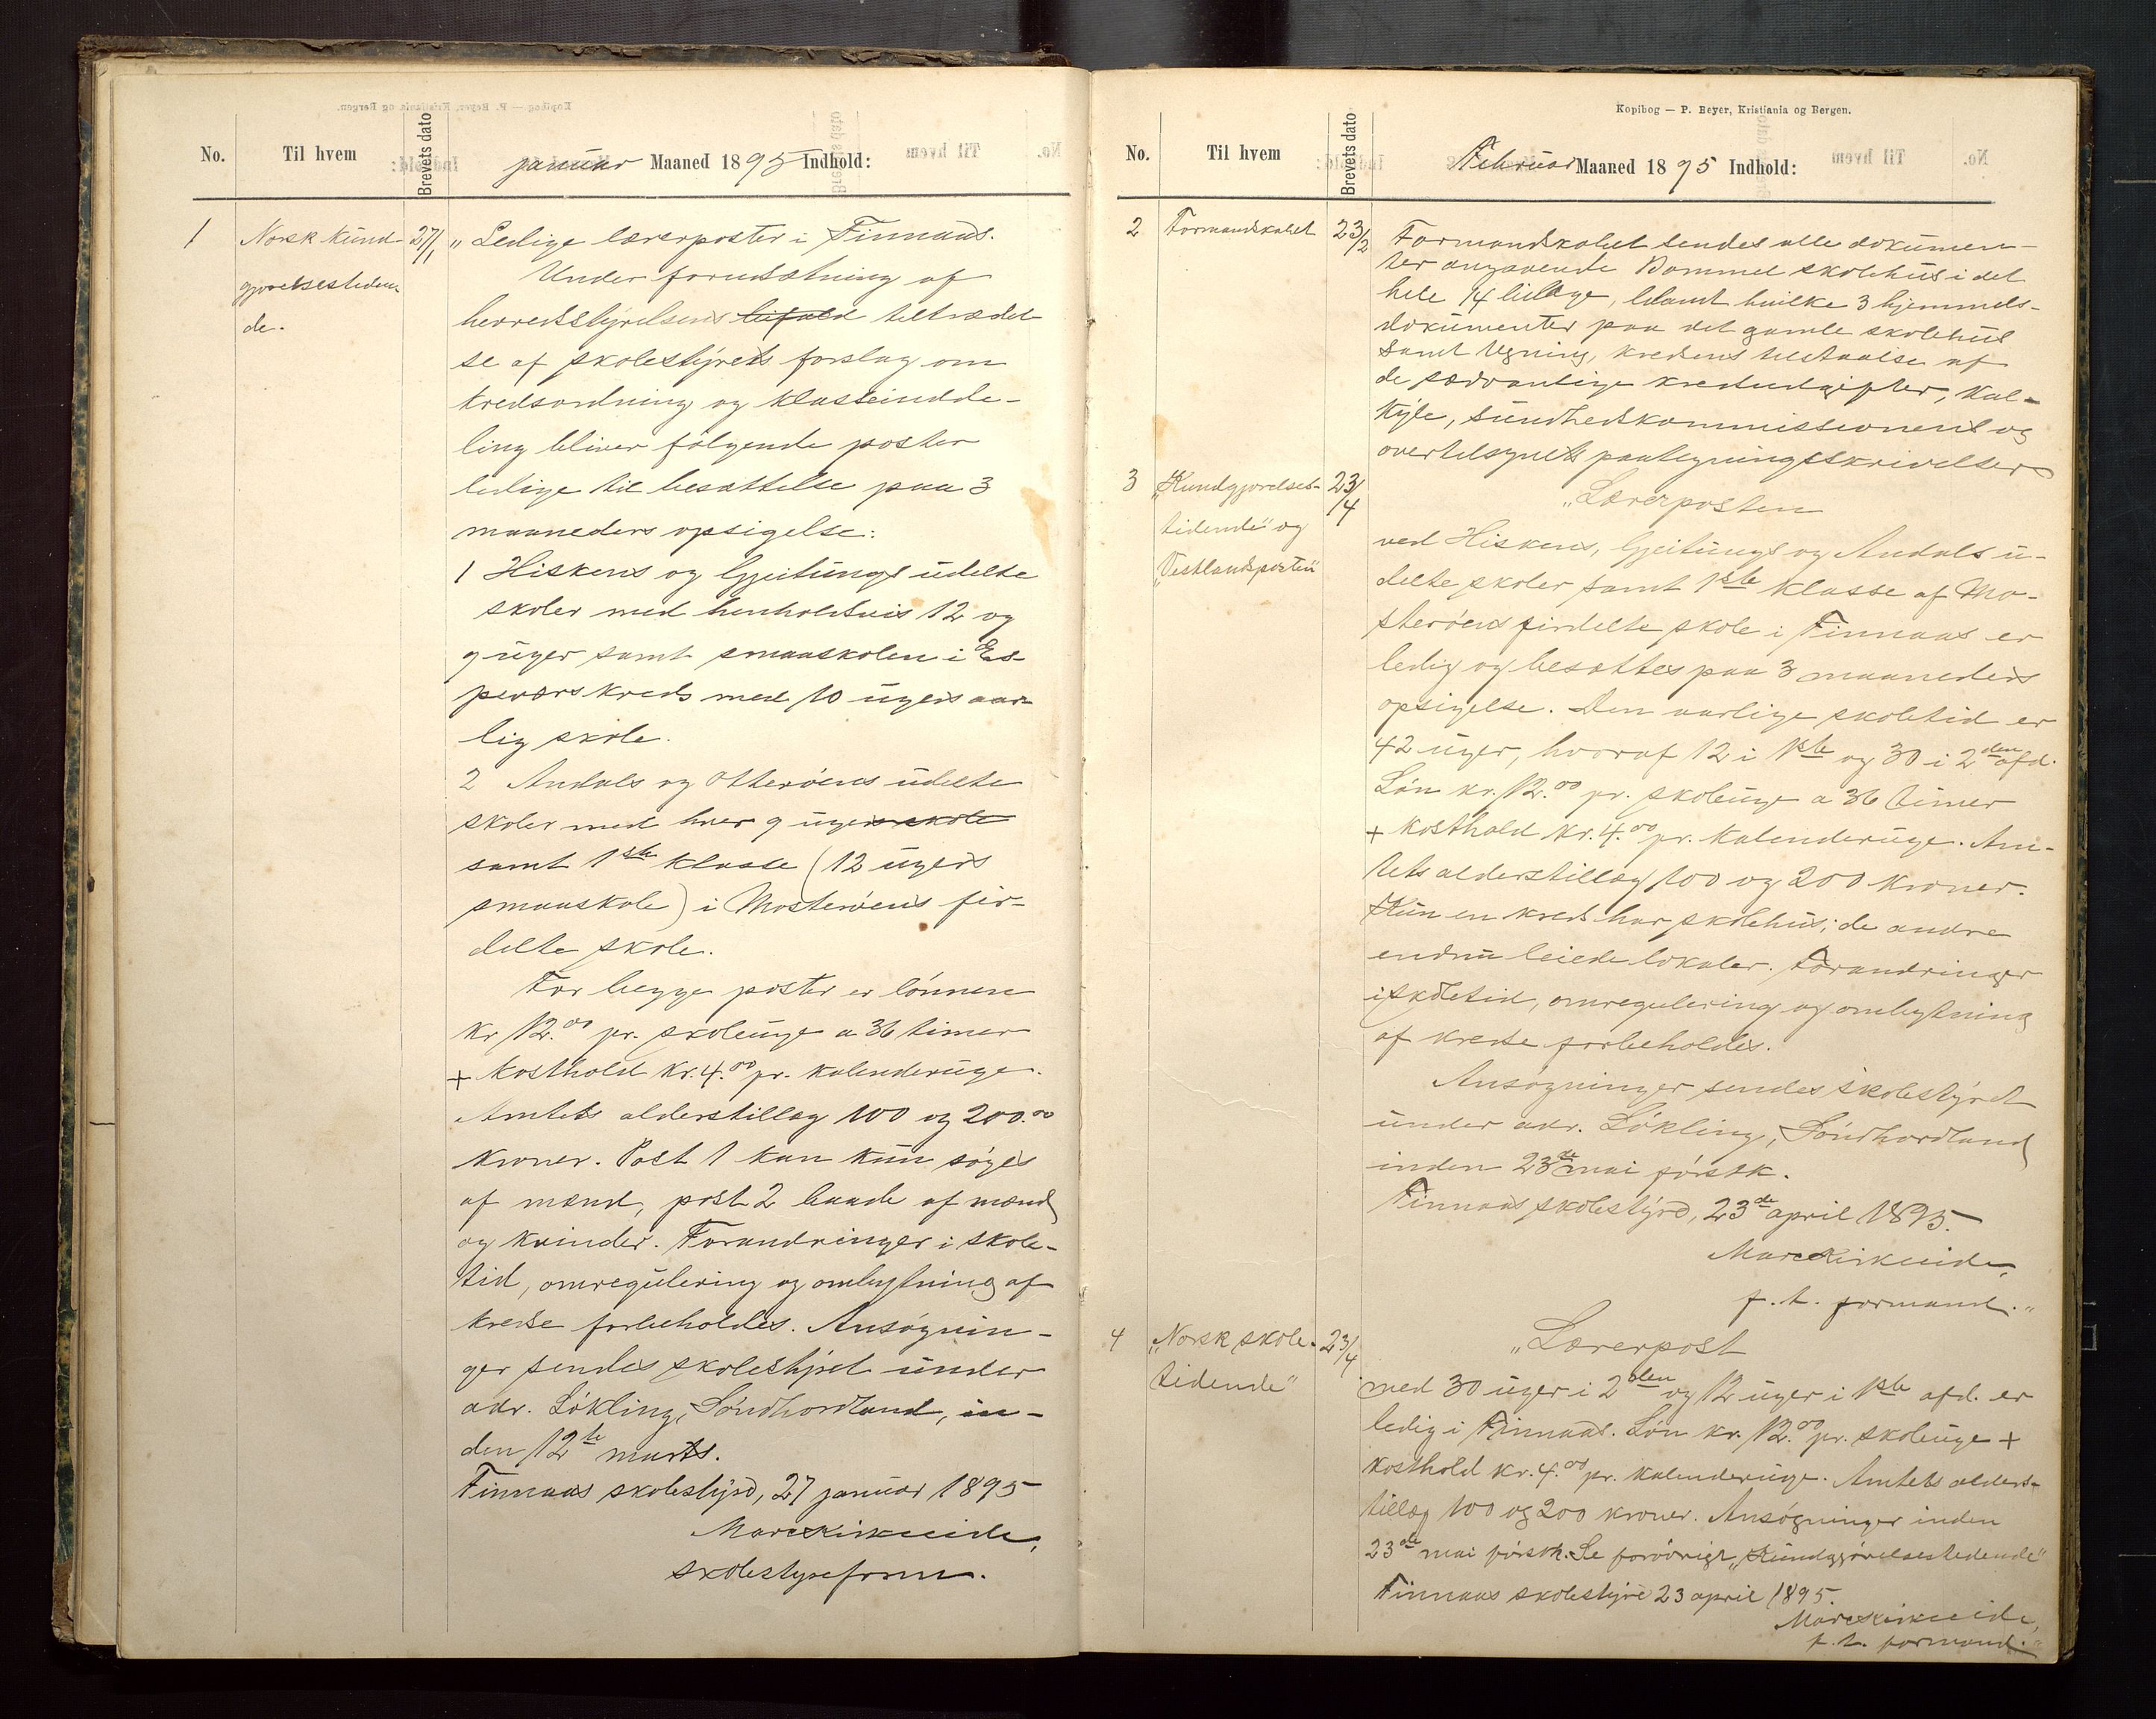 No. Til hvem Brevets dato januar Maaned 1895 Indhold:
1 Norsk Kund- 27/1 „Ledige lærerposter i Finnaas.
gjørelsestiden-
de.
Under forudsætning af
herredsstyrelsens bifald tiltrædel-
se af skolestyrets forslag om
kredsordning og klasseindde-
ling bliver følgende poster
ledige til besættelse paa 3
maaneders opsigelse:
1 Hiskens og Gjeitungs udelte
skoler med henholdsvis 12 og
9 uger samt smaaskolen i Es-
peværs kreds med 10 ugers aar-
lig skole.
2 Andals og Otterøens udelte
skoler med hver 9 ugers skole
samt 1ste klasse (12 ugers
smaaskole) i Mosterøens fir-
delte skole.
For begge poster er lønnen
kr 12.00 pr. skoleuge a 36 timer
+ kosthold kr. 4.00 pr. kalenderuge.
Amtets alderstillæg 100 og 200.00
kroner. Post 1 kan kun søges
af mænd, post 2 baade af mænd
og kvinder. Forandringer i skole-
tid, omregulering og ombytning af
kredse forbeholdes. Ansøgnin-
ger sendes skolestyret under
adr. Løkling, Søndhordland, in-
den 12te marts.
Finnaas skolestyre, 27 januar 1895
Mons Kirkeide,
skolestyreform.
Kopibog — P. Beyer, Kristiania og Bergen.
No. Til hvem Brevets dato Februar Maaned 1895 Indhold:
2 Formandskabet 23/2 Formandskabet sendes alle dokumen-
ter angaaende Bømmel skolehus i det
hele 14 bilage, blandt hvilke 3 hjemmels-
dokumenter paa det gamle skolehus
samt tegning, kredsens tilstaaelse af
de sædvanlige kredsudgifter, kal-
kyle, sundhedskommissionens og
overtilsynets paategningsskrivelser
3 „Kundgjørelses- 23/4 „Lærerposten
tidende" og
„Vestlandsposten"
ved Hiskens, Gjeitungs og Andals u-
delte skoler samt 1ste klasse af Mo-
sterøens firdelte skole i Finnaas er
ledig og besættes paa 3 maaneders
opsigelse. Den aarlige skoletid er
42 uger, hvoraf 12 i 1ste og 30 i 2den afd.
Løn kr. 12.00 pr. skoleuge a 36 timer
+ kosthold kr. 4.00 pr. kalenderuge. Am-
tets alderstillæg 100 og 200 kroner.
Kun en kreds har skolehus; de andre
endnu leiede lokaler. Forandringer
i skoletid, omregulering og ombytning
af kredse forbeholdes.
Ansøgninger sendes skolestyret
under adr. Løkling, Søndhordland
inden 23de mai førstk.
Finnaas skolestyre, 23de april 1895.
Mons Kirkeide,
f. t. formand."
4 „Norsk skole- 23/4 „Lærerpost
tidende"
med 30 uger i 2den og 12 uger i 1ste afd. er
ledig i Finnaas. Løn kr. 12.00 pr. skoleuge +
kosthold kr. 4.00 pr. kalenderuge. Amtets alders-
tillæg 100 og 200 kroner. Ansøgninger inden
23de mai førstk. Se forøvrigt „Kundgjørelsestidende"
Finnaas skolestyre 23 april 1895.
Mons Kirkeide,
f. t. formand."